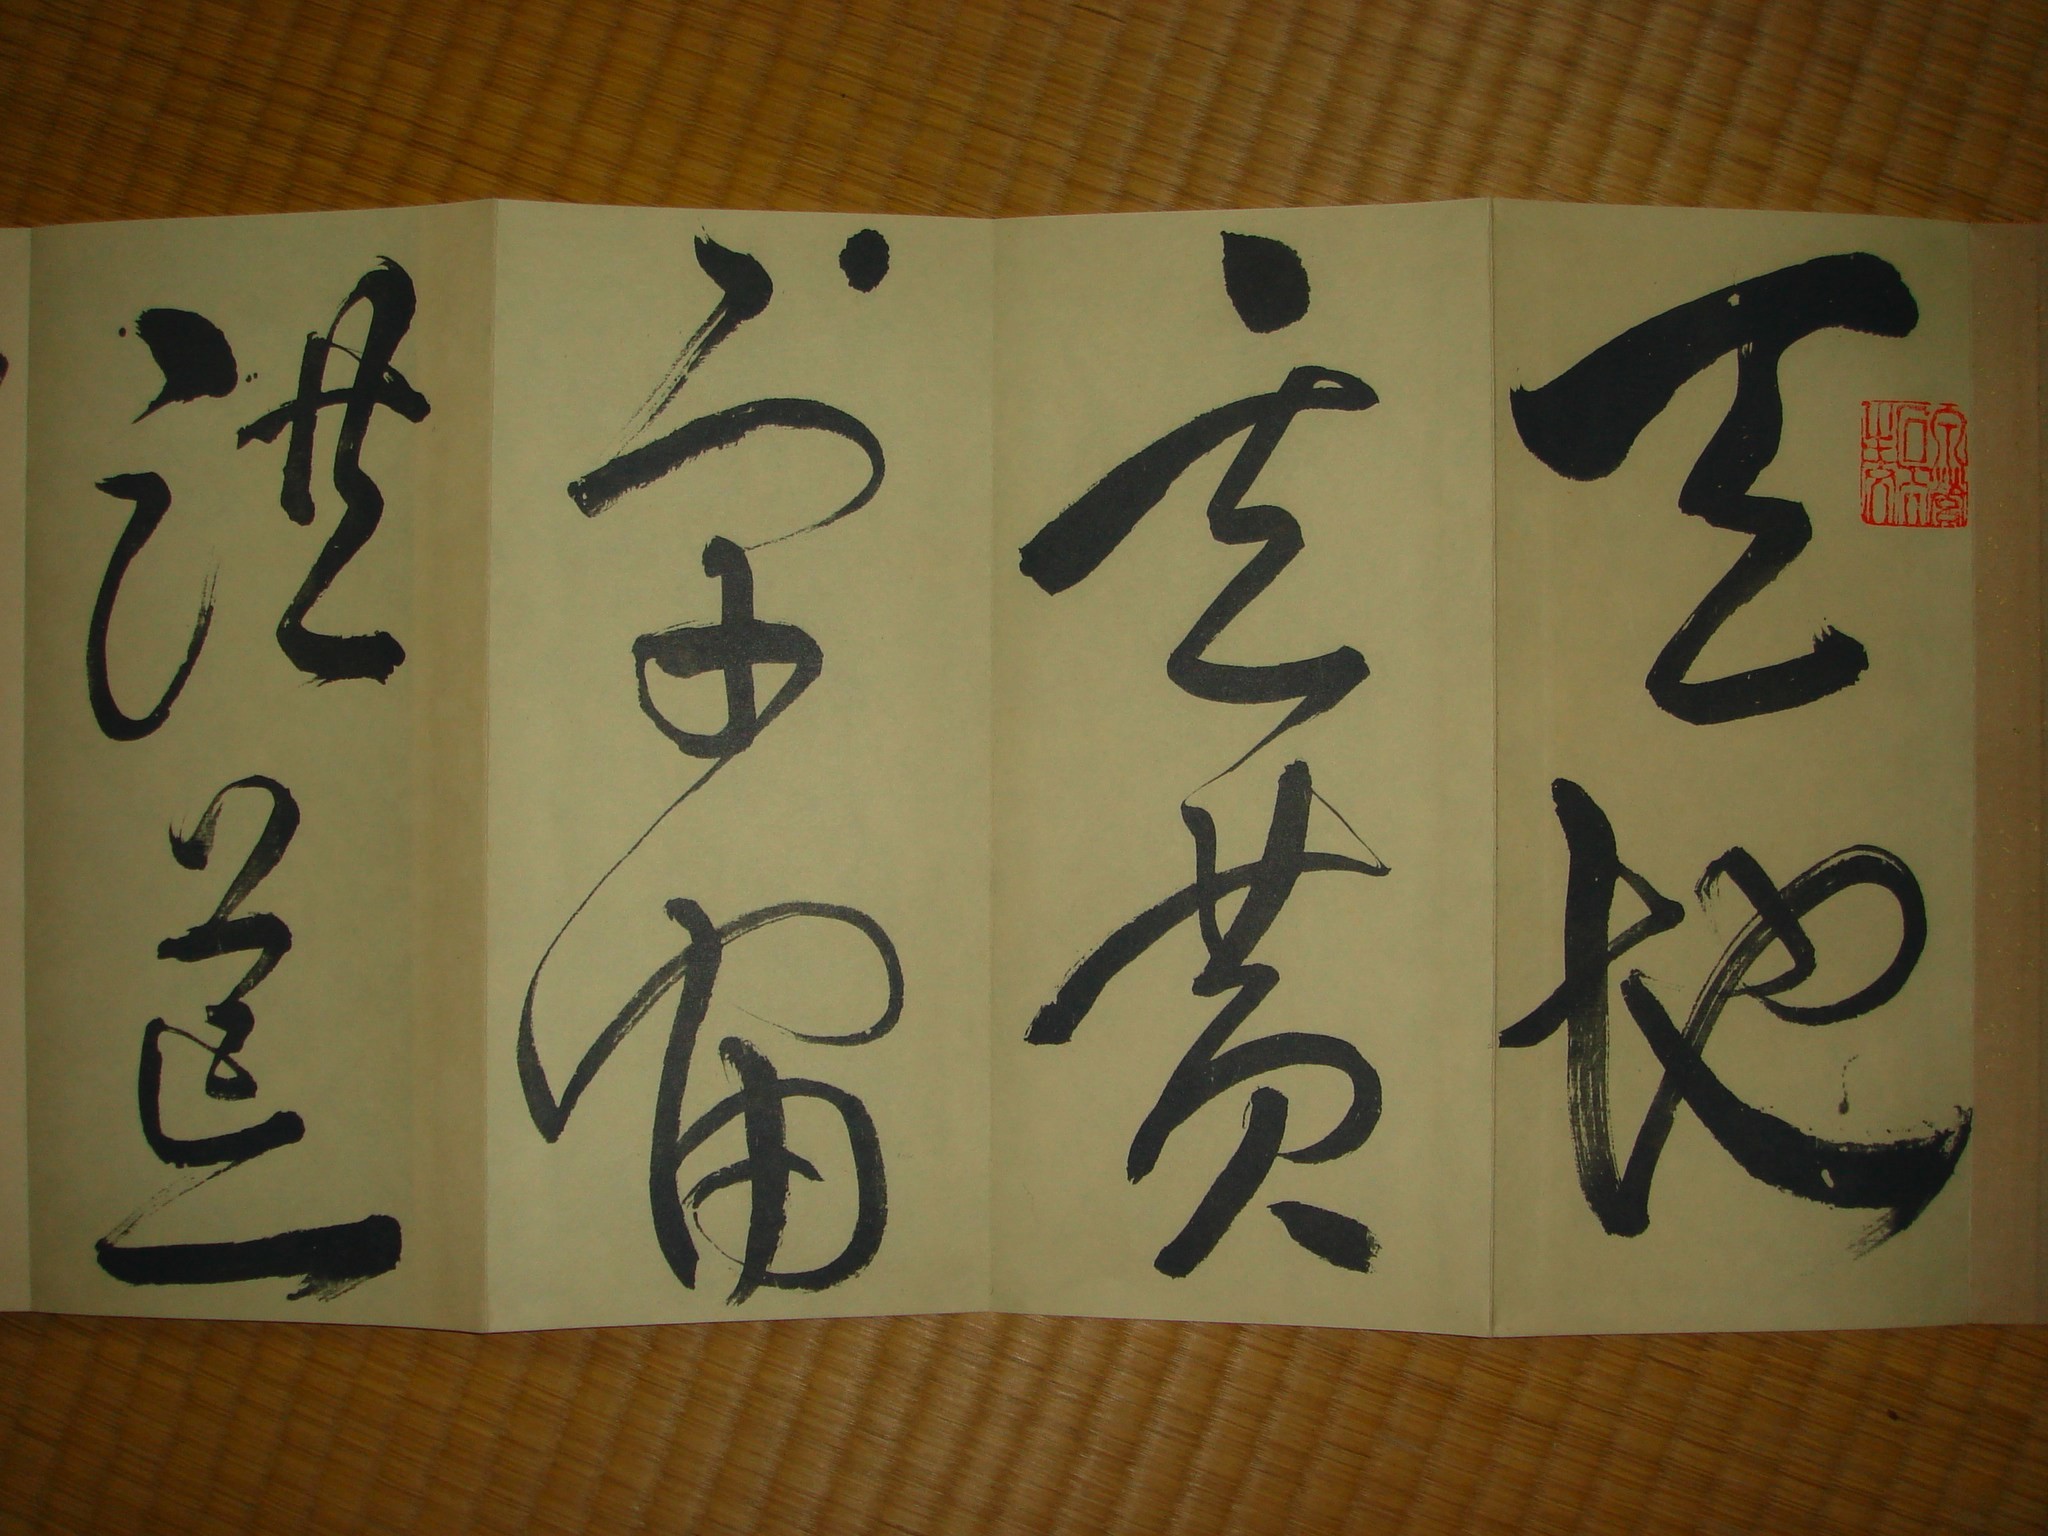 天地
玄黄
宇宙
洪荒